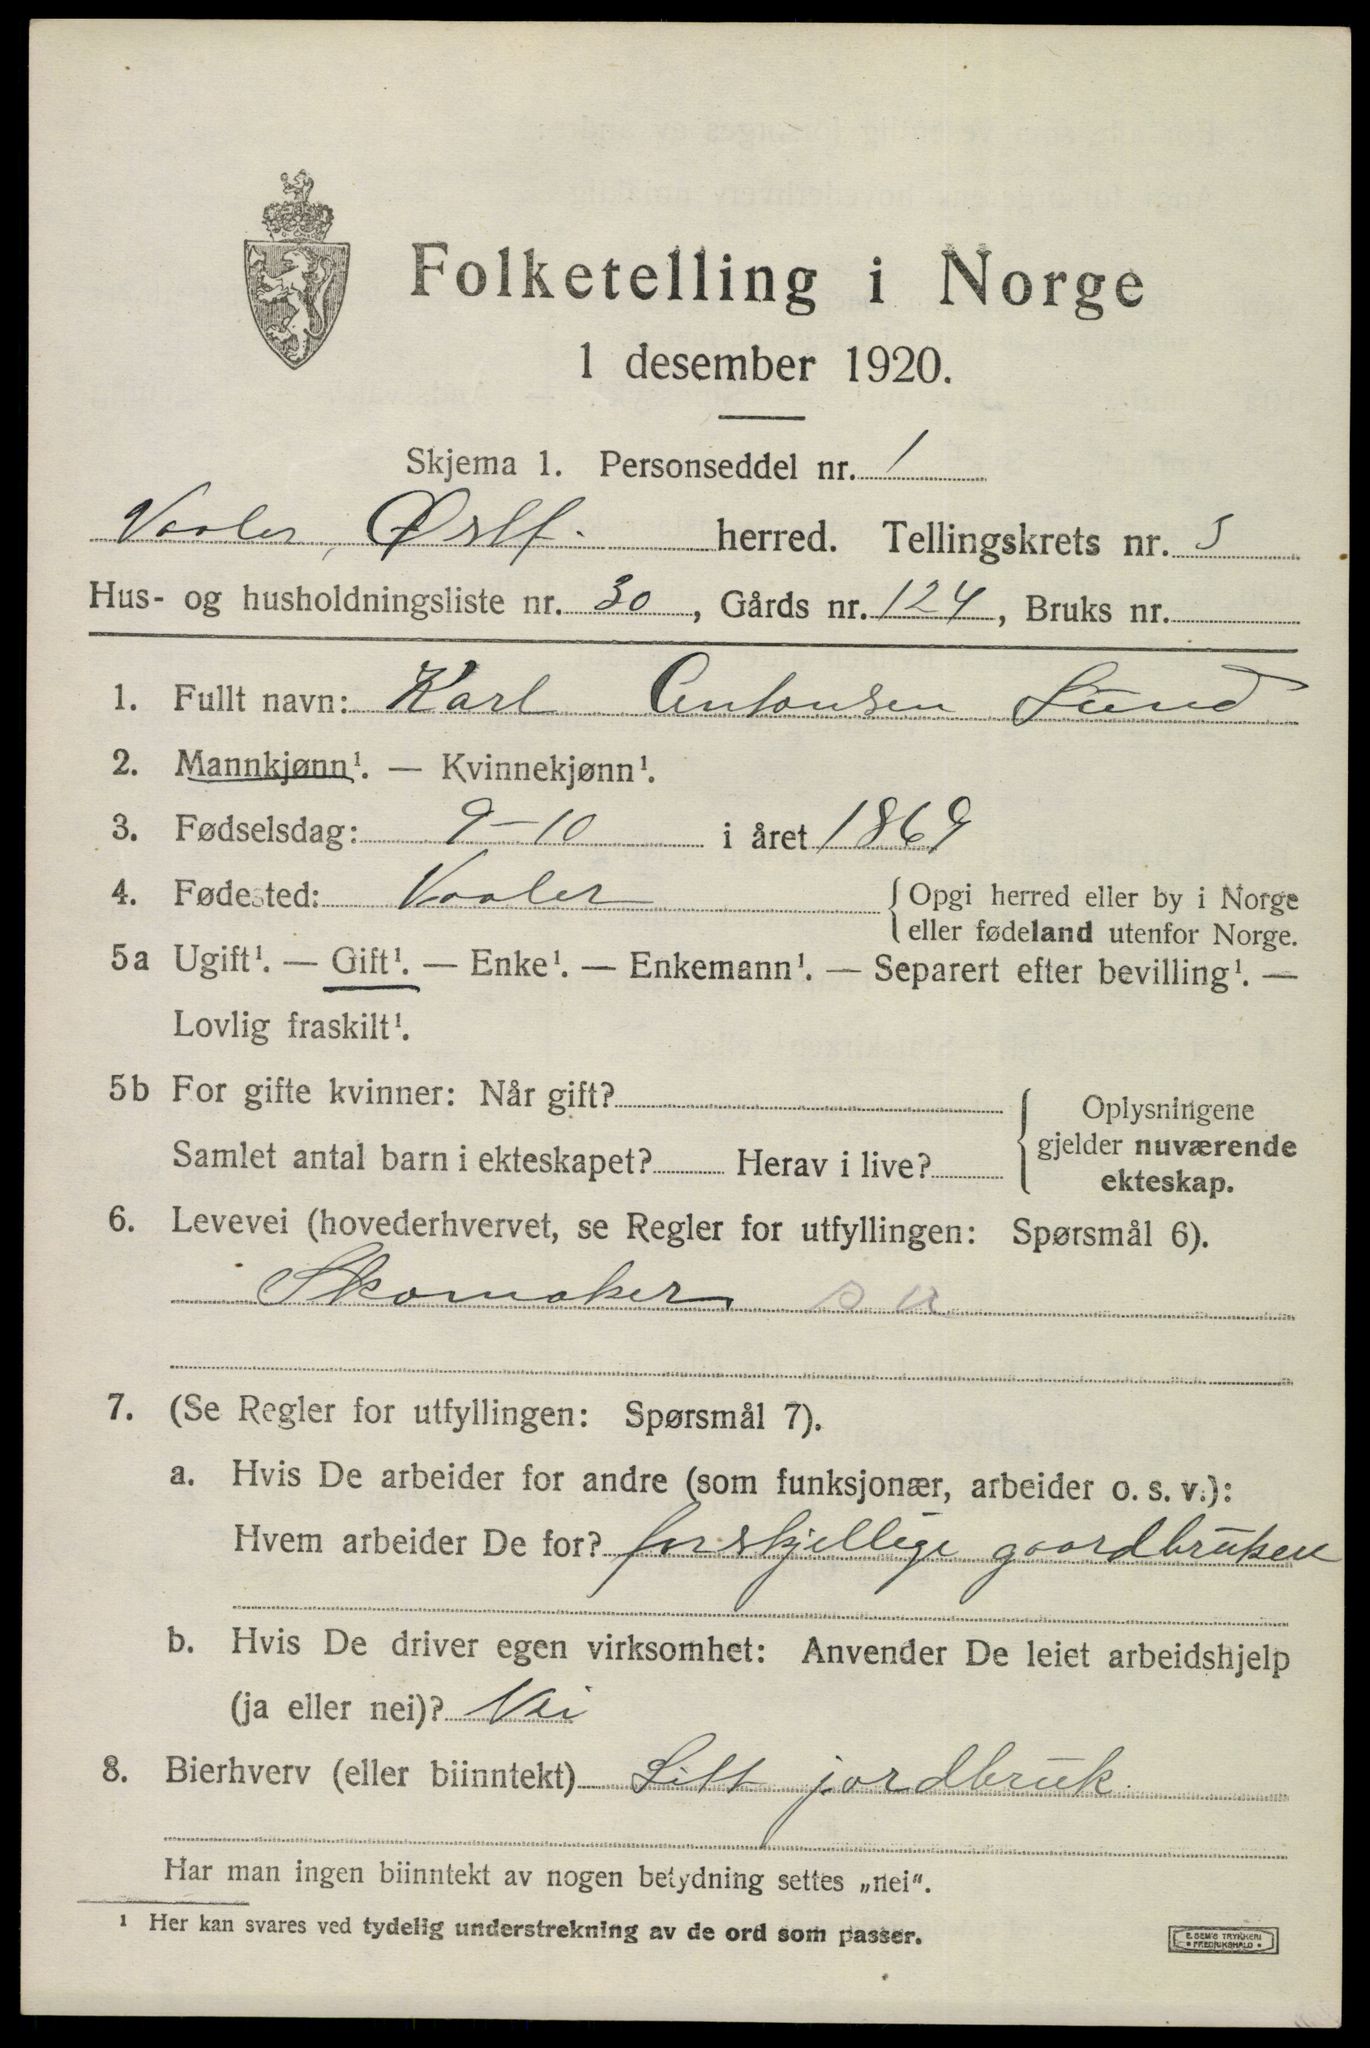 Folketelling i Norge
1 desember 1920.
Skjema 1. Personseddel nr. 1
Vaaler, Østf. herred. Tellingskrets nr. 5
Hus- og husholdningsliste nr. 30, Gårds nr. 124, Bruks nr.
1. Fullt navn: Karl Antonsen Lund
2. Mannkjønn¹. — Kvinnekjønn¹.
3. Fødselsdag: 9-10 i året 1869
4. Fødested: Vaaler { Opgi herred eller by i Norge
eller fødeland utenfor Norge.
5a Ugift¹. — Gift¹. — Enke¹. — Enkemann¹. — Separert efter bevilling¹. —
Lovlig fraskilt¹.
5b For gifte kvinner: Når gift?
Samlet antal barn i ekteskapet? Herav i live?
{ Oplysningene
gjelder nuværende
ekteskap.
6. Levevei (hovederhvervet, se Regler for utfyllingen: Spørsmål 6).
Skomaker
7. (Se Regler for utfyllingen: Spørsmål 7).
a. Hvis De arbeider for andre (som funksjonær, arbeider o. s. v.):
Hvem arbeider De for? forskjellige gaardbrukere
b. Hvis De driver egen virksomhet: Anvender De leiet arbeidshjelp
(ja eller nei)? Nei
8. Bierhverv (eller biinntekt) Litt jordbruk.
Har man ingen biinntekt av nogen betydning settes „nei".
¹ Her kan svares ved tydelig understrekning av de ord som passer.
E. SEM'S TRYKKERI
• FREDRIKSHALD •